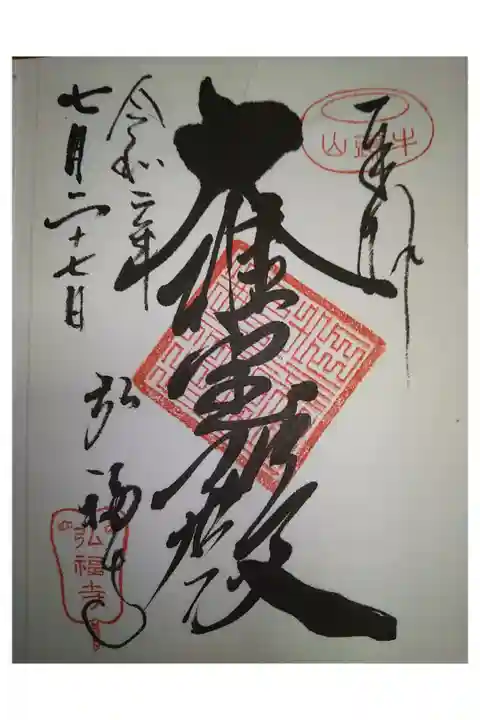 奉拝
牛頭山
大雄寶殿
令和二年
七月二十七日
弘福寺
弘福寺